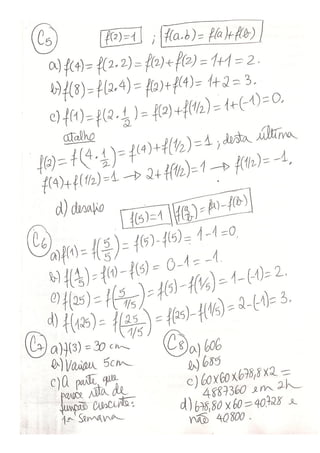 C5 f(2)=1 ; f(a.b) = f(a)+f(b)
a) f(4) = f(2.2) = f(2)+f(2) = 1+1 = 2.
b) f(8) = f(2.4) = f(2)+f(4) = 1+2 = 3.
c) f(1) = f(2.1/2) = f(2)+f(1/2) = 1+(-1) = 0.
atalho
f(2) = f(4.1/2) = f(4)+f(1/2) = 1; desta última
f(4)+f(1/2) = 1 → 2+f(1/2) = 1 → f(1/2) = -1.
d) desafio
f(5)=1 f(a/b) = f(a)-f(b)
C6 a) f(1) = f(5/5) = f(5)-f(5) = 1-1 = 0.
b) f(1/5) = f(1)-f(5) = 0-1 = -1.
c) f(25) = f(5/1/5) = f(5)-f(1/5) = 1-(-1) = 2.
d) f(125) = f(25/1/5) = f(25)-f(1/5) = 2-(-1) = 3.
C7 a) f(3) = 30 cm
b) Variou 5cm
c) A parte que
parece reta de
função crescente:
1ª semana
C8 a) 606
b) 685
c) 60x60x678,8x2 =
4887360 em 2h
d) 678,80 x 60 = 40728 e
não 40800.